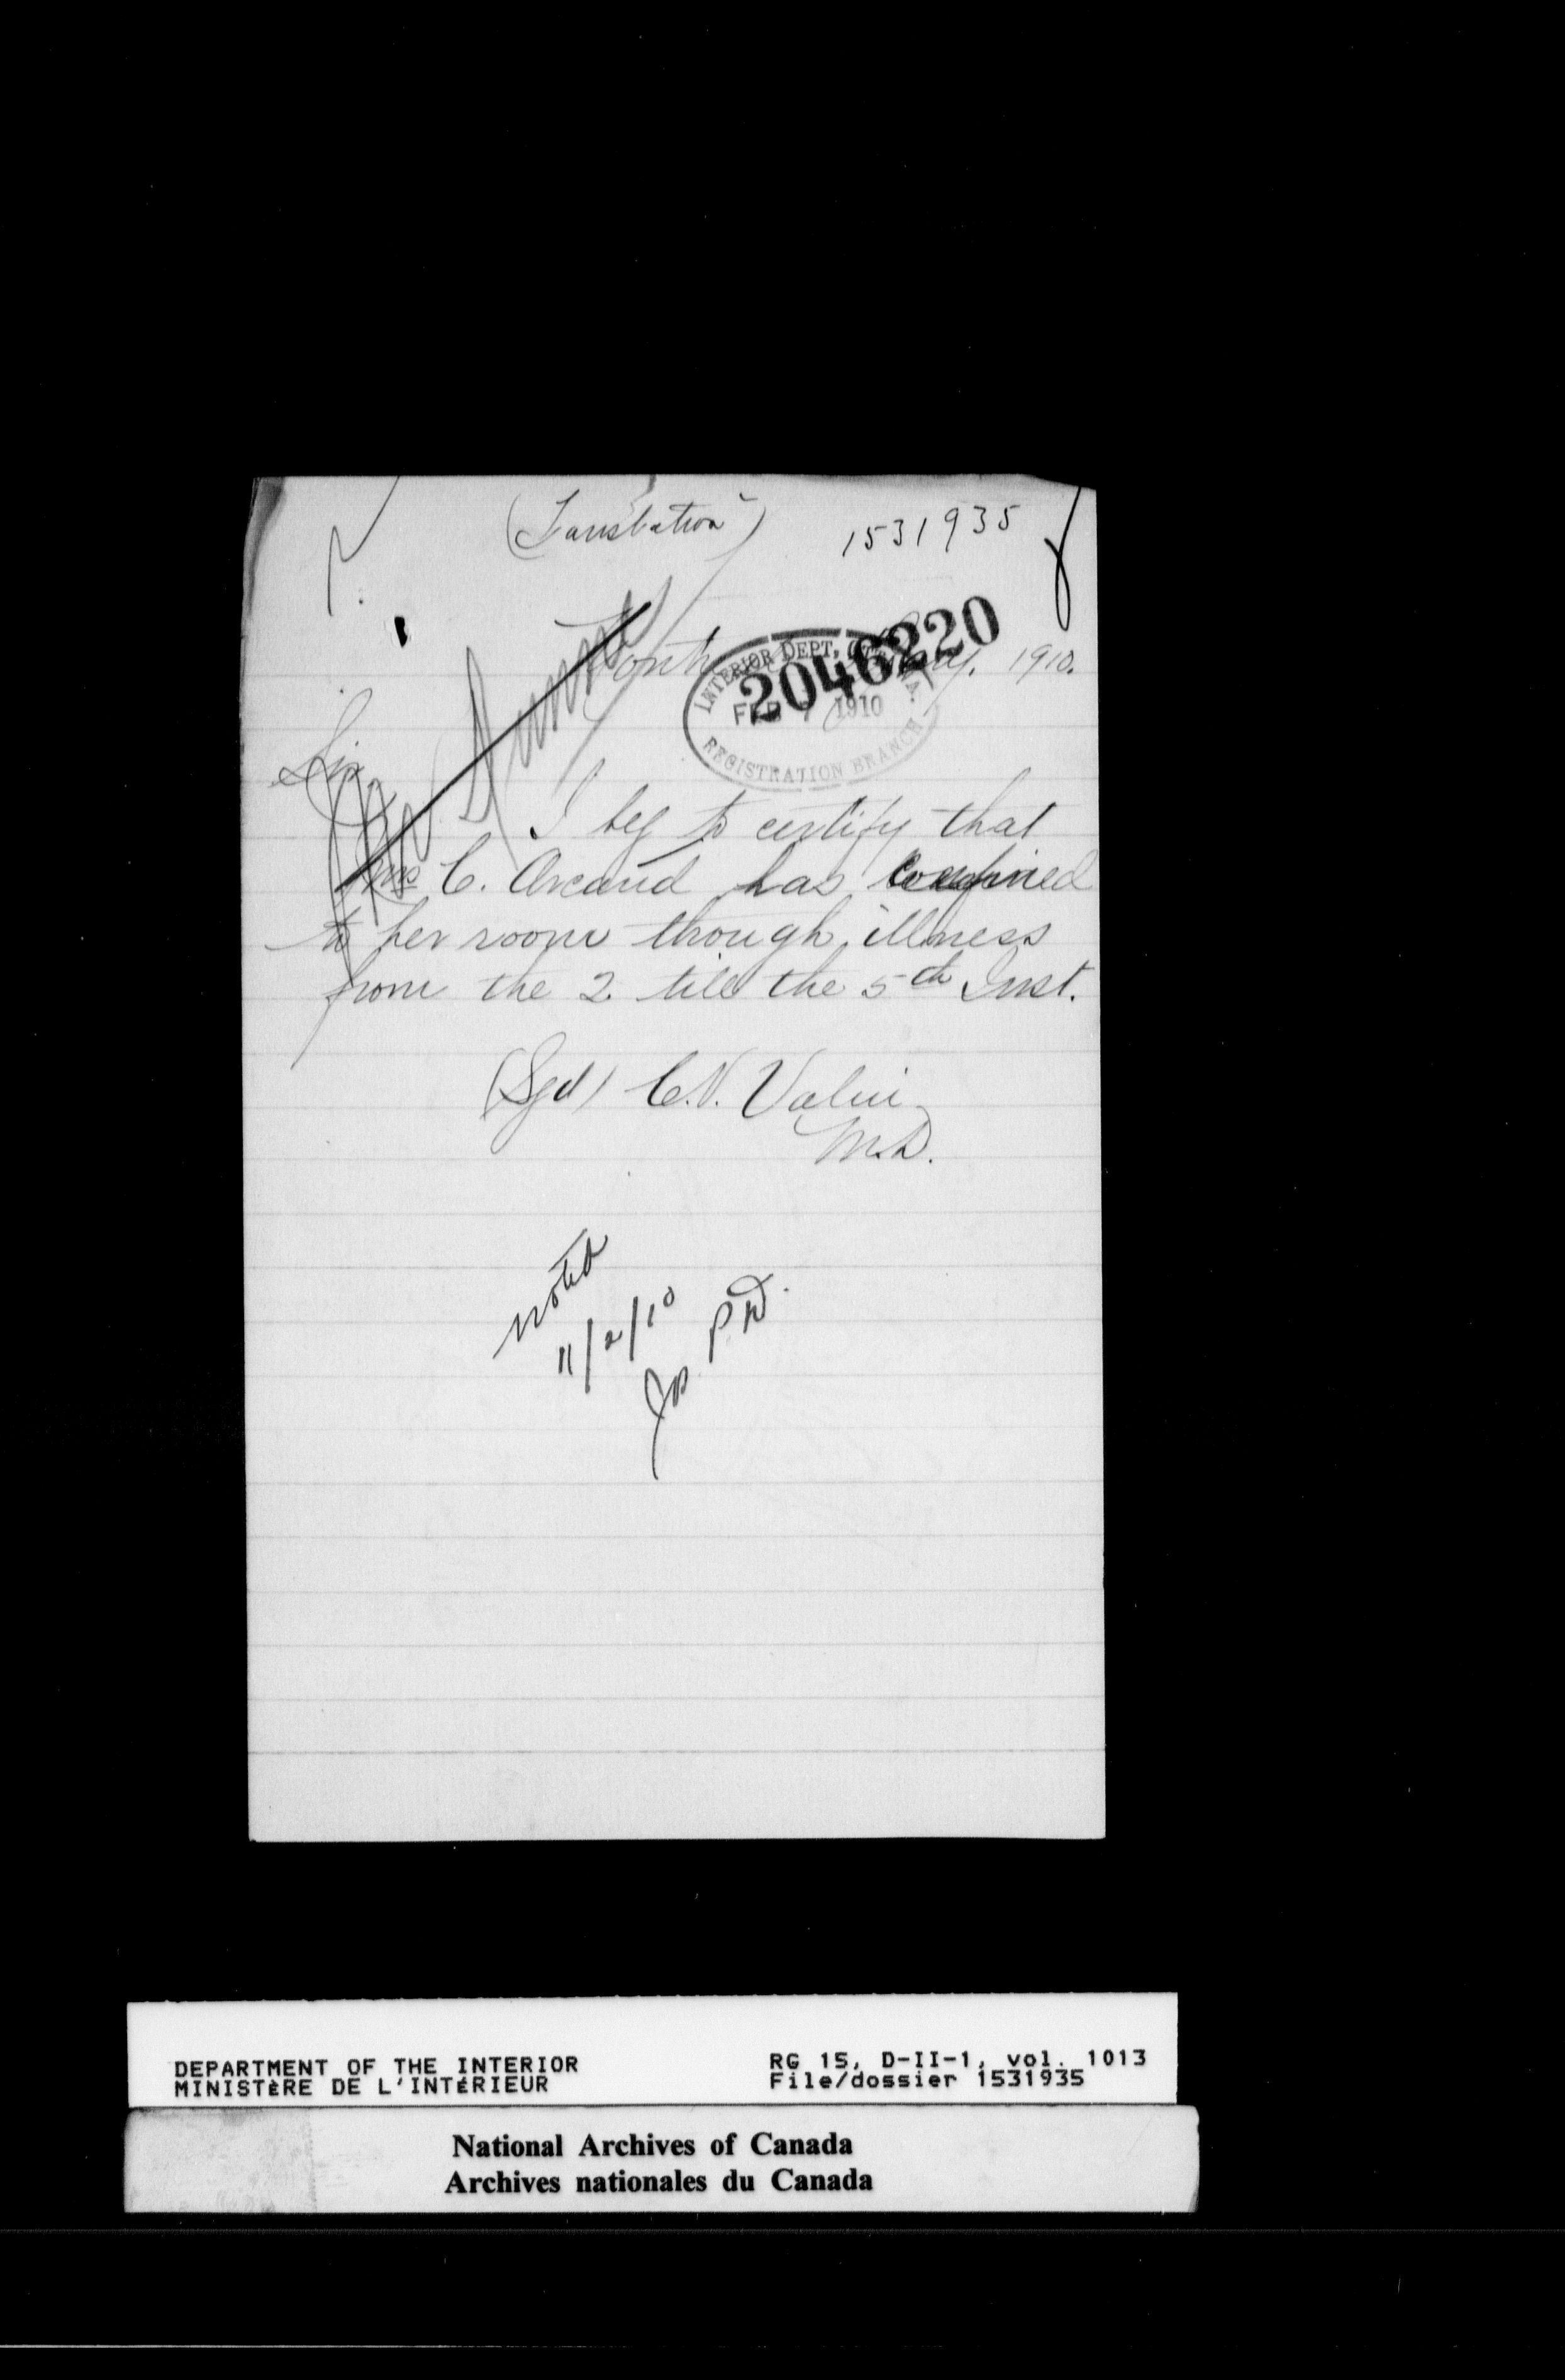 (Translation)
1531935
1910.
2046220
INTERIOR DEPT, OTTAWA.
FEB 7 1910
REGISTRATION BRANCH
Sir
I beg to certify that
C. Arcand has confined
to her room though illness
from the 2 till the 5th Inst.
(Sgd) C.N. Valin
M.D.
noted
11/2/10
DEPARTMENT OF THE INTERIOR
MINISTÈRE DE L'INTÉRIEUR
RG 15, D-II-1, vol. 1013
File/dossier 1531935
National Archives of Canada
Archives nationales du Canada